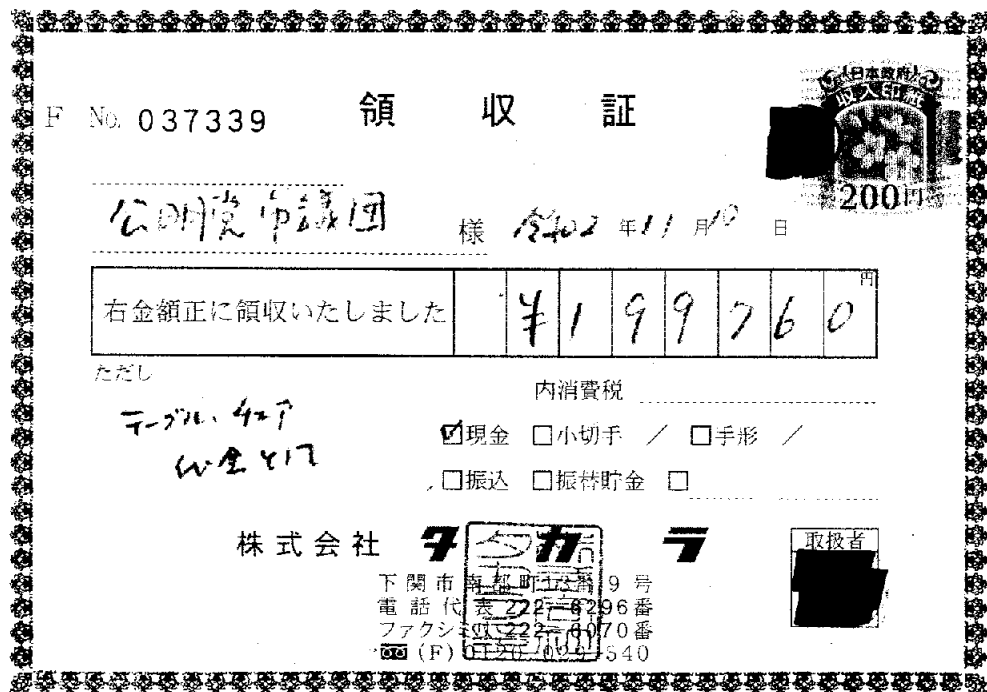 F No. 037339
領収証
日本政府
収入印紙
200円
公明党市議団 様
令和2年11月10日
右金額正に領収いたしました ¥199760円
ただし
テーブル、チェア
代金として
内消費税
☑現金 □小切手 / □手形 /
□振込 □振替貯金 □
株式会社 タカラ
取扱者
下関市南部町13番9号
電話代表 222-6296番
ファクシミリ 222-6070番
(F) 0120-029-540